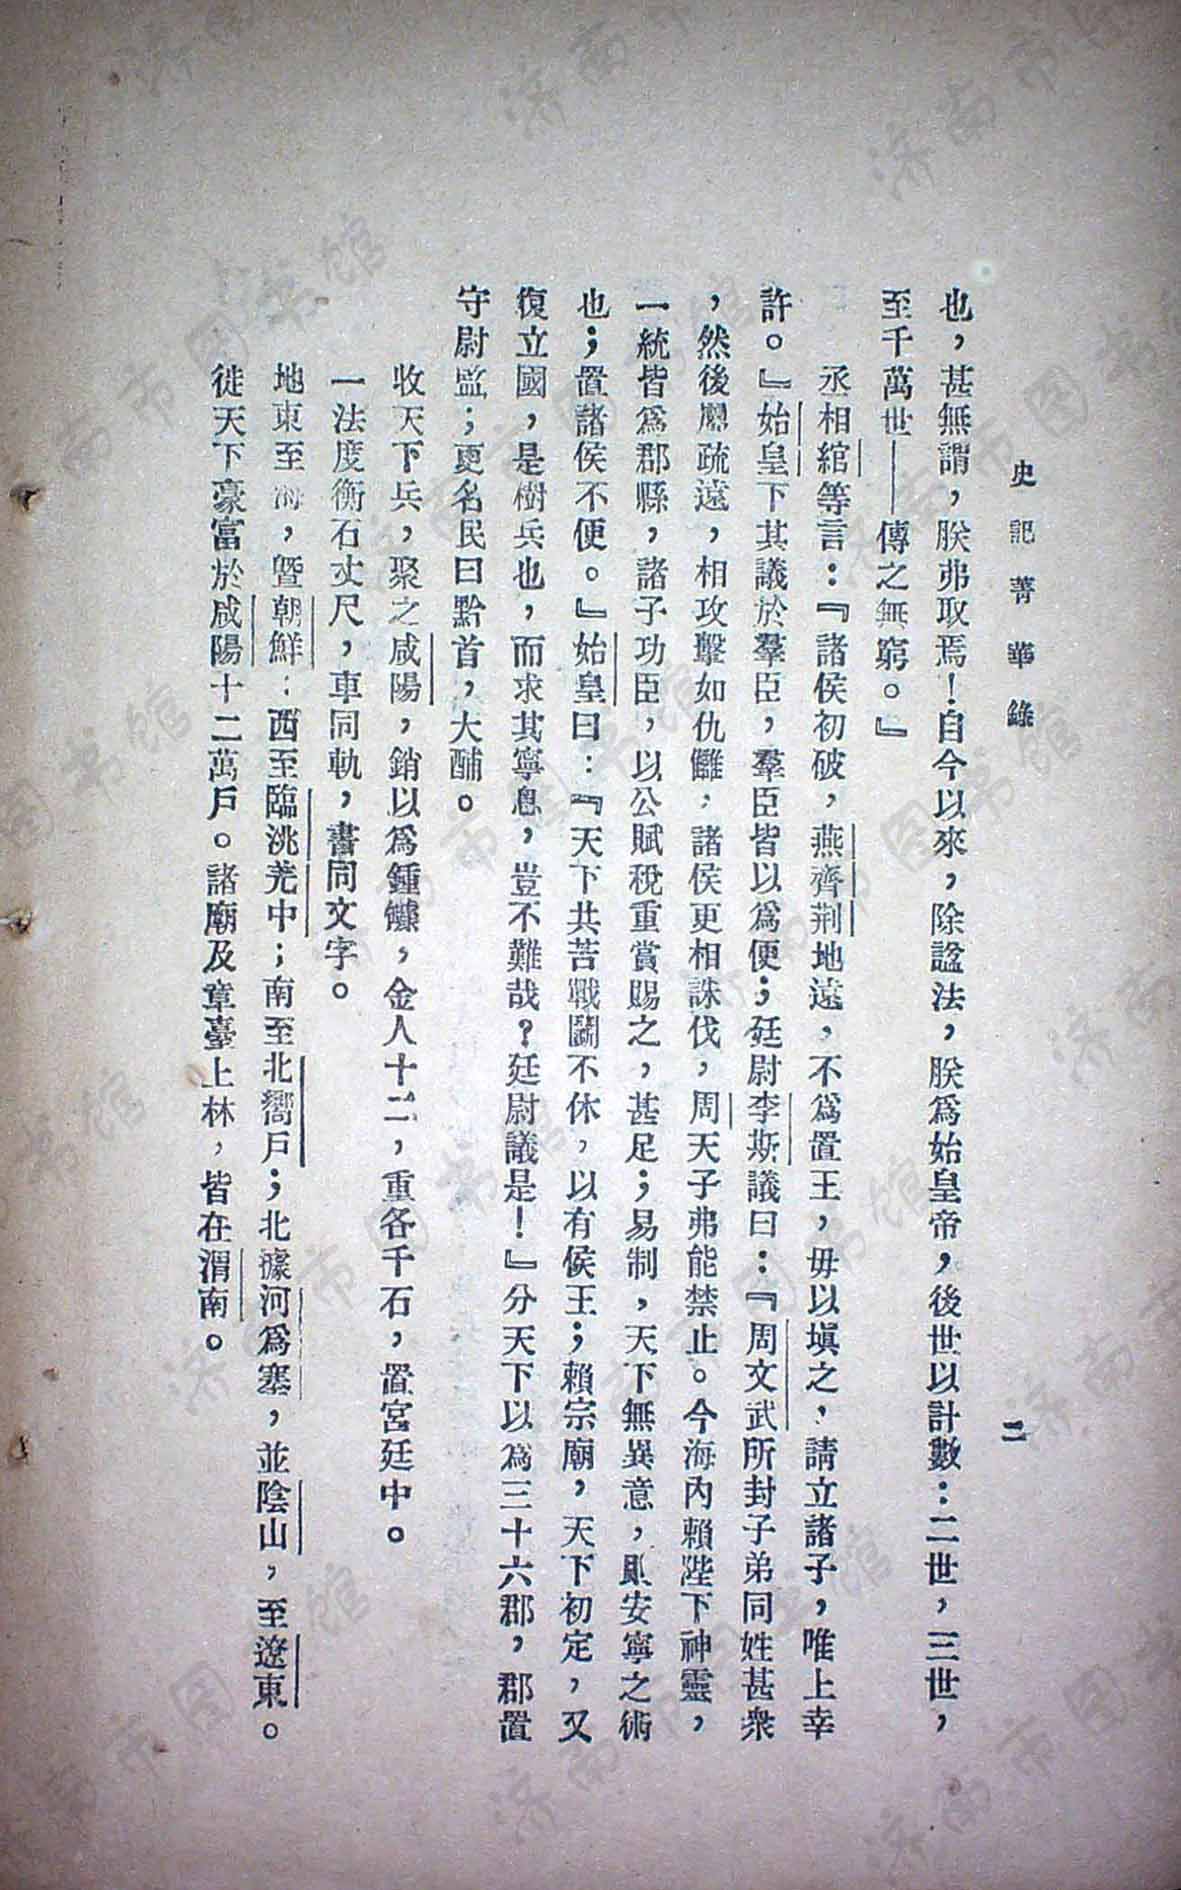 史記菁華錄
二
也，甚無謂，朕弗取焉！自今以來，除諡法，朕爲始皇帝，後世以計數：二世，三世，
至千萬世——傳之無窮。』
丞相綰等言：『諸侯初破，燕齊荆地遠，不爲置王，毋以塡之，請立諸子，唯上幸
許。』始皇下其議於羣臣，羣臣皆以爲便；廷尉李斯議曰：『周文武所封子弟同姓甚衆
，然後屬疏遠，相攻擊如仇讎，諸侯更相誅伐，周天子弗能禁止。今海內賴陛下神靈，
一統皆爲郡縣，諸子功臣，以公賦稅重賞賜之，甚足；易制，天下無異意，則安寧之術
也；置諸侯不便。』始皇曰：『天下共苦戰鬭不休，以有侯王；賴宗廟，天下初定，又
復立國，是樹兵也，而求其寧息，豈不難哉？廷尉議是！』分天下以爲三十六郡，郡置
守尉監；更名民曰黔首，大酺。
收天下兵，聚之咸陽，銷以爲鍾鐻，金人十二，重各千石，置宮廷中。
一法度衡石丈尺，車同軌，書同文字。
地東至海，曁朝鮮；西至臨洮羌中；南至北嚮戶；北據河爲塞，並陰山，至遼東。
徙天下豪富於咸陽十二萬戶。諸廟及章臺上林，皆在渭南。
济南市图书馆